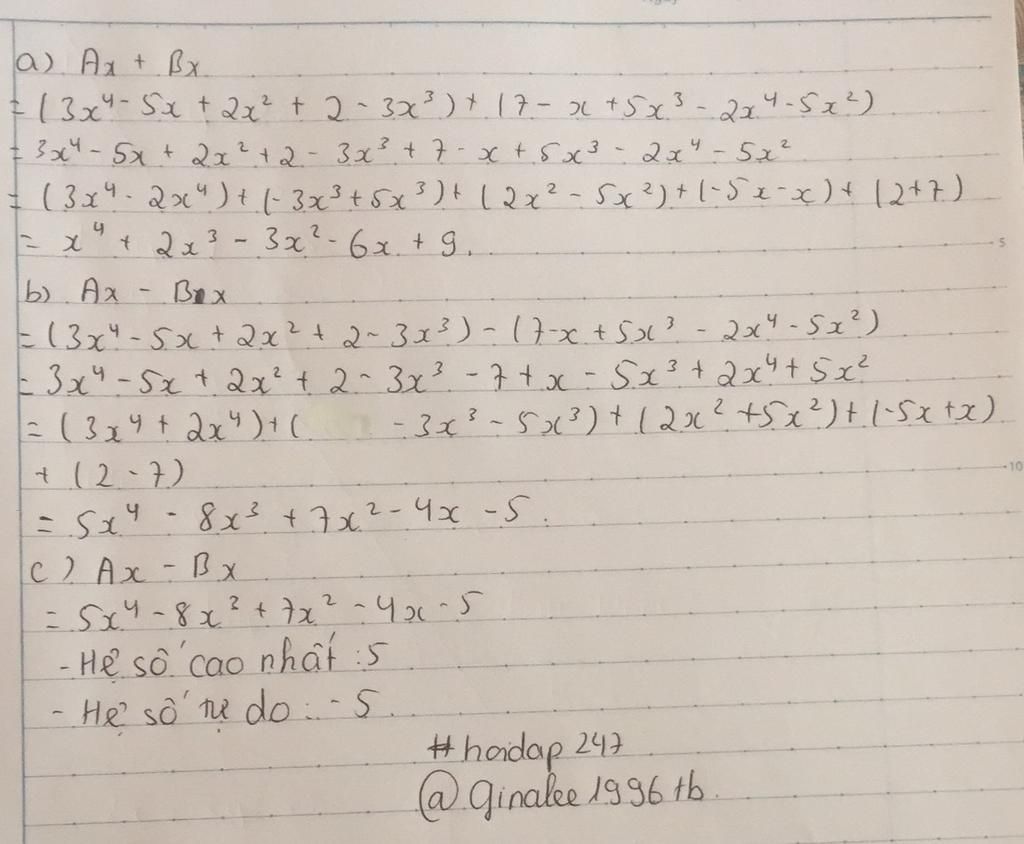 a) Ax + Bx
= (3x⁴ - 5x + 2x² + 2 - 3x³) + (7 - x + 5x³ - 2x⁴ - 5x²)
= 3x⁴ - 5x + 2x² + 2 - 3x³ + 7 - x + 5x³ - 2x⁴ - 5x²
= (3x⁴ - 2x⁴) + (-3x³ + 5x³) + (2x² - 5x²) + (-5x - x) + (2+7)
= x⁴ + 2x³ - 3x² - 6x + 9.
5
b) Ax - Bx
= (3x⁴ - 5x + 2x² + 2 - 3x³) - (7-x + 5x³ - 2x⁴ - 5x²)
= 3x⁴ - 5x + 2x² + 2 - 3x³ - 7 + x - 5x³ + 2x⁴ + 5x²
= (3x⁴ + 2x⁴) + ( - 3x³ - 5x³) + (2x² + 5x²) + (-5x + x)
+ (2 - 7)
10
= 5x⁴ - 8x³ + 7x² - 4x - 5.
c) Ax - Bx
= 5x⁴ - 8x³ + 7x² - 4x - 5
- Hệ số cao nhất : 5
- Hệ số tự do : - 5.
# hoidap 247
@Ginalee1996tb.